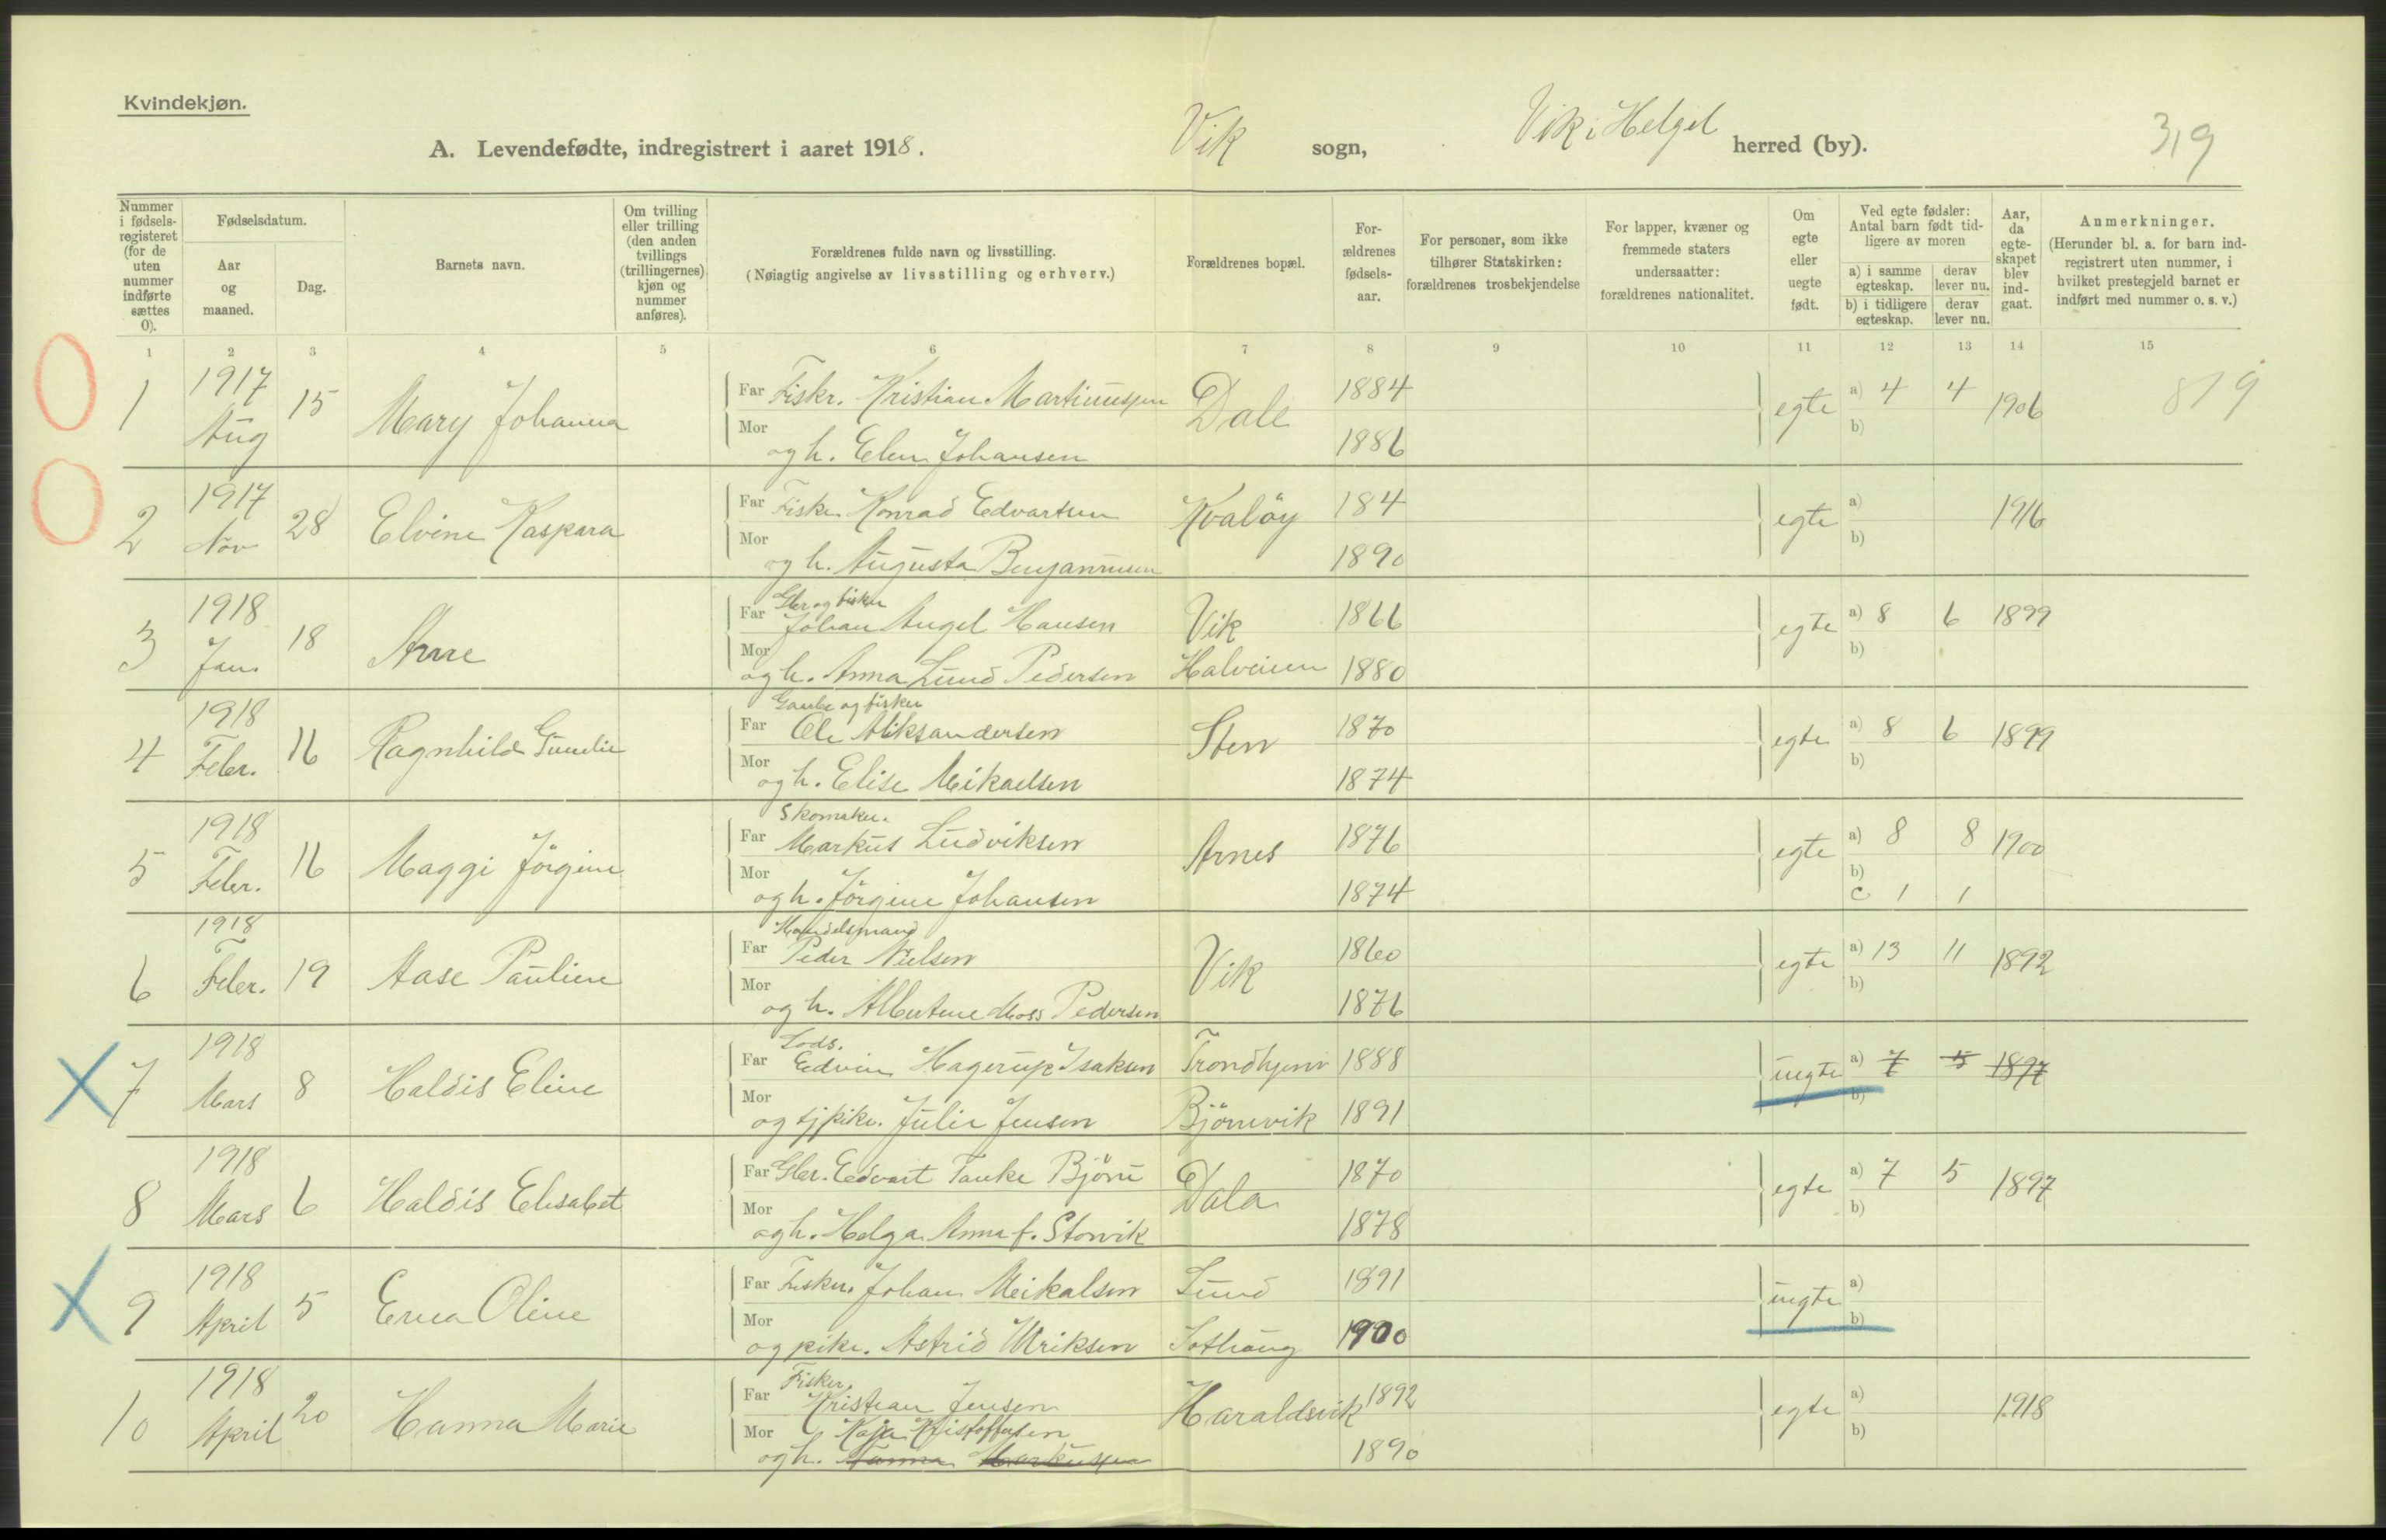 Kvindekjøn.
A. Levendefødte, indregistrert i aaret 1918. Vik sogn, Vik i Helgel herred (by). 319
Nummer i fødsels-registeret (for de uten nummer indførte sættes 0).
Fødselsdatum.
Aar og maaned.
Dag.
Barnets navn.
Om tvilling eller trilling (den anden tvillings (trillingernes) kjøn og nummer anføres).
Forældrenes fulde navn og livsstilling.
(Nøiagtig angivelse av livsstilling og erhverv.)
Forældrenes bopæl.
For-ældrenes fødsels-aar.
For personer, som ikke tilhører Statskirken: forældrenes trosbekjendelse
For lapper, kvæner og fremmede staters undersaatter: forældrenes nationalitet.
Om egte eller uegte født.
Ved egte fødsler: Antal barn født tid-ligere av moren
a) i samme egteskap. derav lever nu.
b) i tidligere egteskap. derav lever nu.
Aar, da egte-skapet blev ind-gaat.
Anmerkninger.
(Herunder bl. a. for barn ind-registrert uten nummer, i hvilket prestegjeld barnet er indført med nummer o. s. v.)
1 2 3 4 5 6 7 8 9 10 11 12 13 14 15
1 1917 Aug 15 Mary Johanna
Far Fiskr. Kristian Martinussen Dale 1884 egte a) 4 4 1906 819
Mor og h. Elen Johansen 1886 b)
2 1917 Nov 28 Elvine Kaspara
Far Fisker Konrad Edvartsen Kvaløy 184 egte a) 1916
Mor og h. Augusta Benjaminsen 1890 b)
3 1918 Jan. 18 Arne
Gbr og fisker
Far Johan Angel Hansen Vik 1866 egte a) 8 6 1899
Mor og h. Anna Lund Pedersen Halveien 1880 b)
4 1918 Febr. 16 Ragnhild
Gaardbr og fisker
Far Ole Aliksandersen Sten 1870 egte a) 8 6 1899
Mor og h. Elise Mikaelsen 1874 b)
5 1918 Febr. 16 Maggi Jörgine
Skomaker.
Far Markus Ludviksen Arnes 1876 egte a) 8 8 1900
Mor og h. Jörgine Johansen 1874 b)
c 1 1
6 1918 Febr. 19 Aase Pauline
Handelsmand
Far Peder Nielsen Vik 1860 egte a) 13 11 1892
Mor og h. Albertine Moss Pedersen 1876 b)
7 1918 Mars 8 Haldis Eline
Lods.
Far Edvin Hagerup Isaksen Trondhjem 1888 uegte a) 7 5 1897
Mor og tjpike. Julie Jensen Björnvik 1891 b)
8 1918 Mars 6 Haldis Elisabet
Far Gbr. Edvart Tanke Björn Dala 1870 egte a) 7 5 1897
Mor og h. Helga Anna f. Storvik 1878 b)
9 1918 April 5 Erna Oline
Far Fisker. Johan Meikalsen Lund 1891 uegte a)
Mor og pike. Astrid Ulriksen 1900 b)
10 1918 April 20 Hanna Marie
Fisker.
Far Kristian Jensen Haraldsvik 1892 egte a) 1918
Mor Kaja Kristoffersen b)
og h. Hanna Markussen 1890